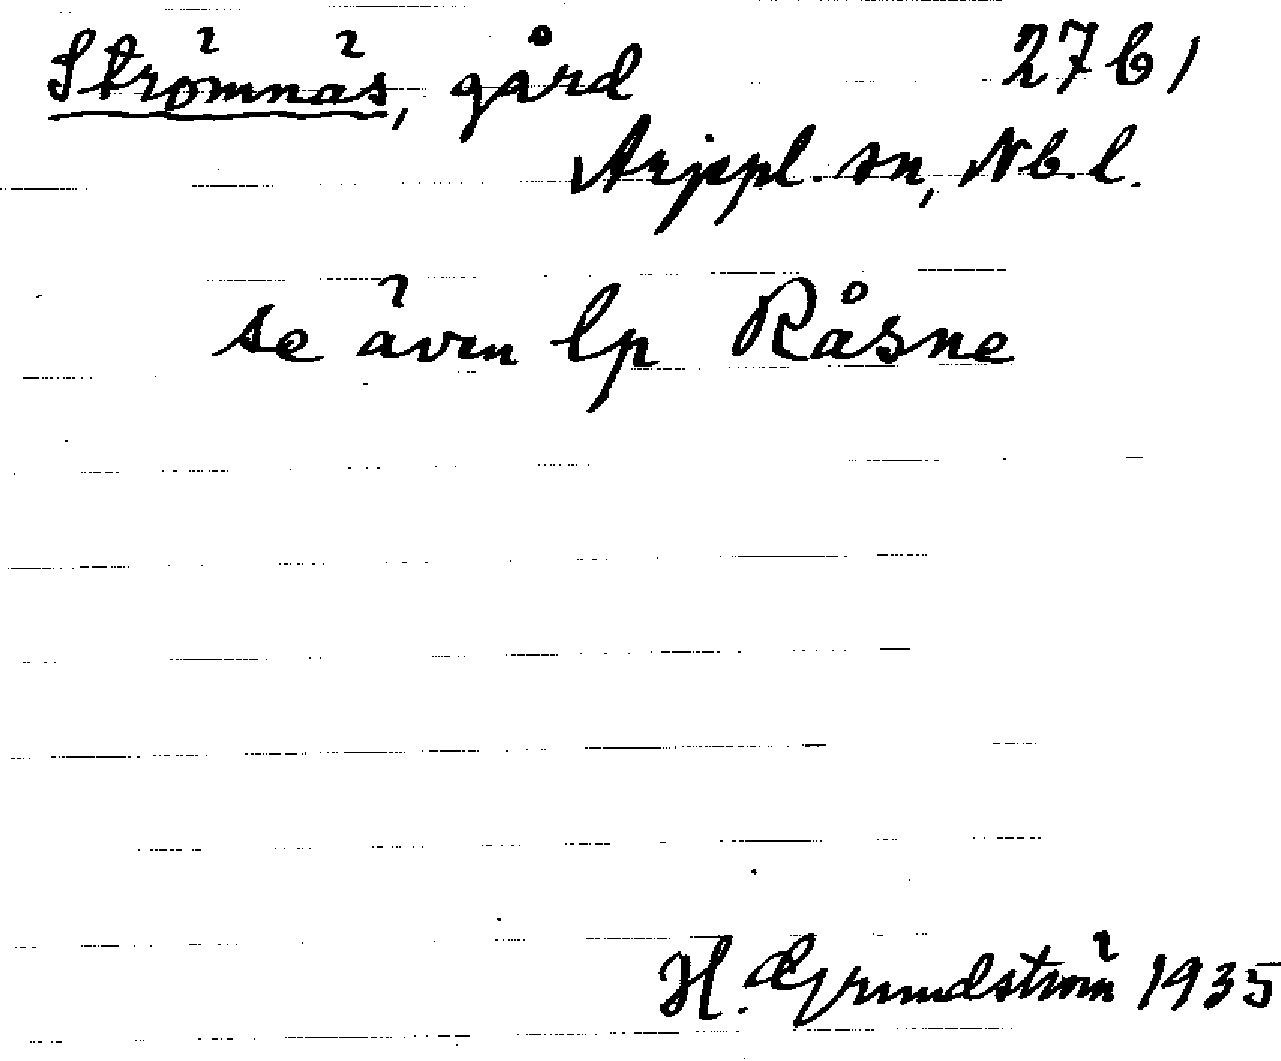 Strömnäs, gård 27 b 1
Arjepl. sn, Nb. l.
se även lp Råsne
H. Grundström 1935